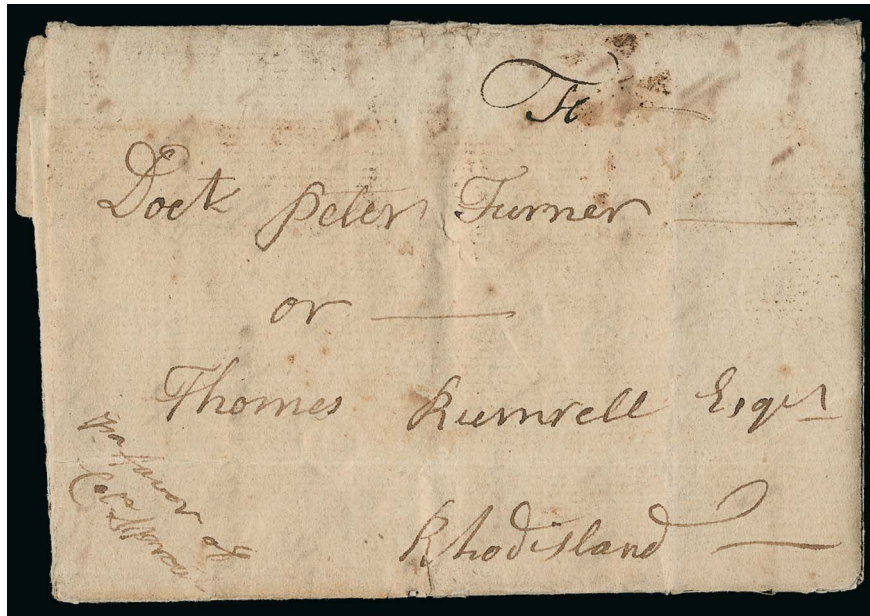 To
Doct Peter Turner
or
Thomes Rumrell Esqr
Rhodisland
favor of